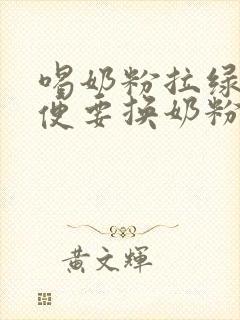 喝奶粉拉绿
便要换奶粉
黄文辉